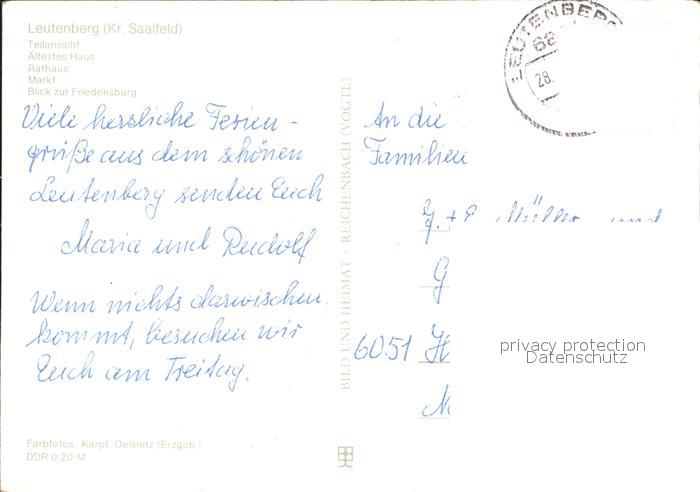 Leutenberg (Kr. Saalfeld)
Teilansicht
Ältestes Haus
Rathaus
Markt
Blick zur Friedensburg
Viele herzliche Ferien-
grüße aus dem schönen
Leutenberg senden Euch
Maria und Rudolf
Wenn nichts dazwischen
kommt, besuchen wir
Euch am Freitag.
Farbfotos: Karpf, Oelsnitz (Erzgeb.)
DDR 0,20 M
BILD UND HEIMAT · REICHENBACH (VOGTL)
LEUTENBERG
68
28.
An die
Familien
+ Müller und
G
6051 H
M
privacy protection
Datenschutz